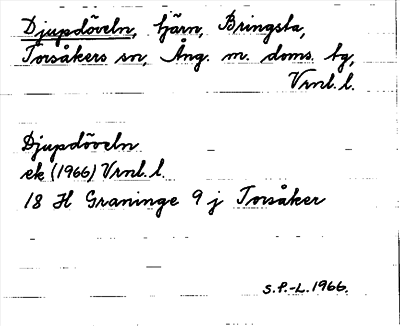 Djupdöveln, tjärn, Bringsta,
Torsåkers sn, Ång. m. doms. tg,
Vrnl. l.
Djupdöveln
ek (1966) Vrnl. l.
18 H Graninge 9 j Torsåker
S.P.-L. 1966.